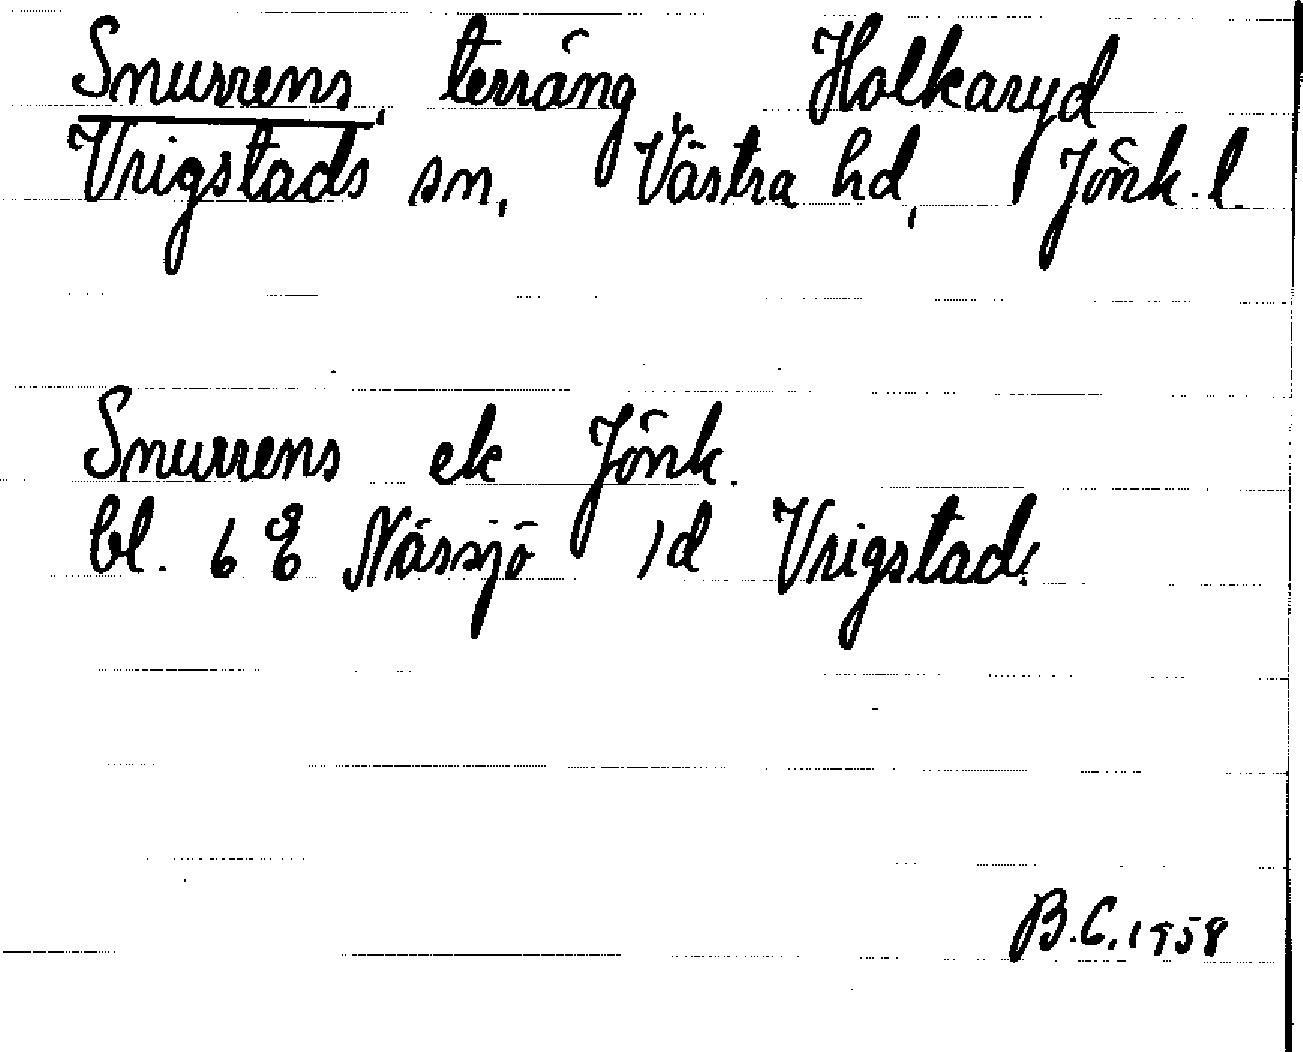 Snurrens, terräng, Holkaryd
Vrigstads sn, Västra hd, Jönk. l.
Snurrens ek Jönk.
bl. 6 E Nässjö 1d Vrigstad.
B.C. 1958